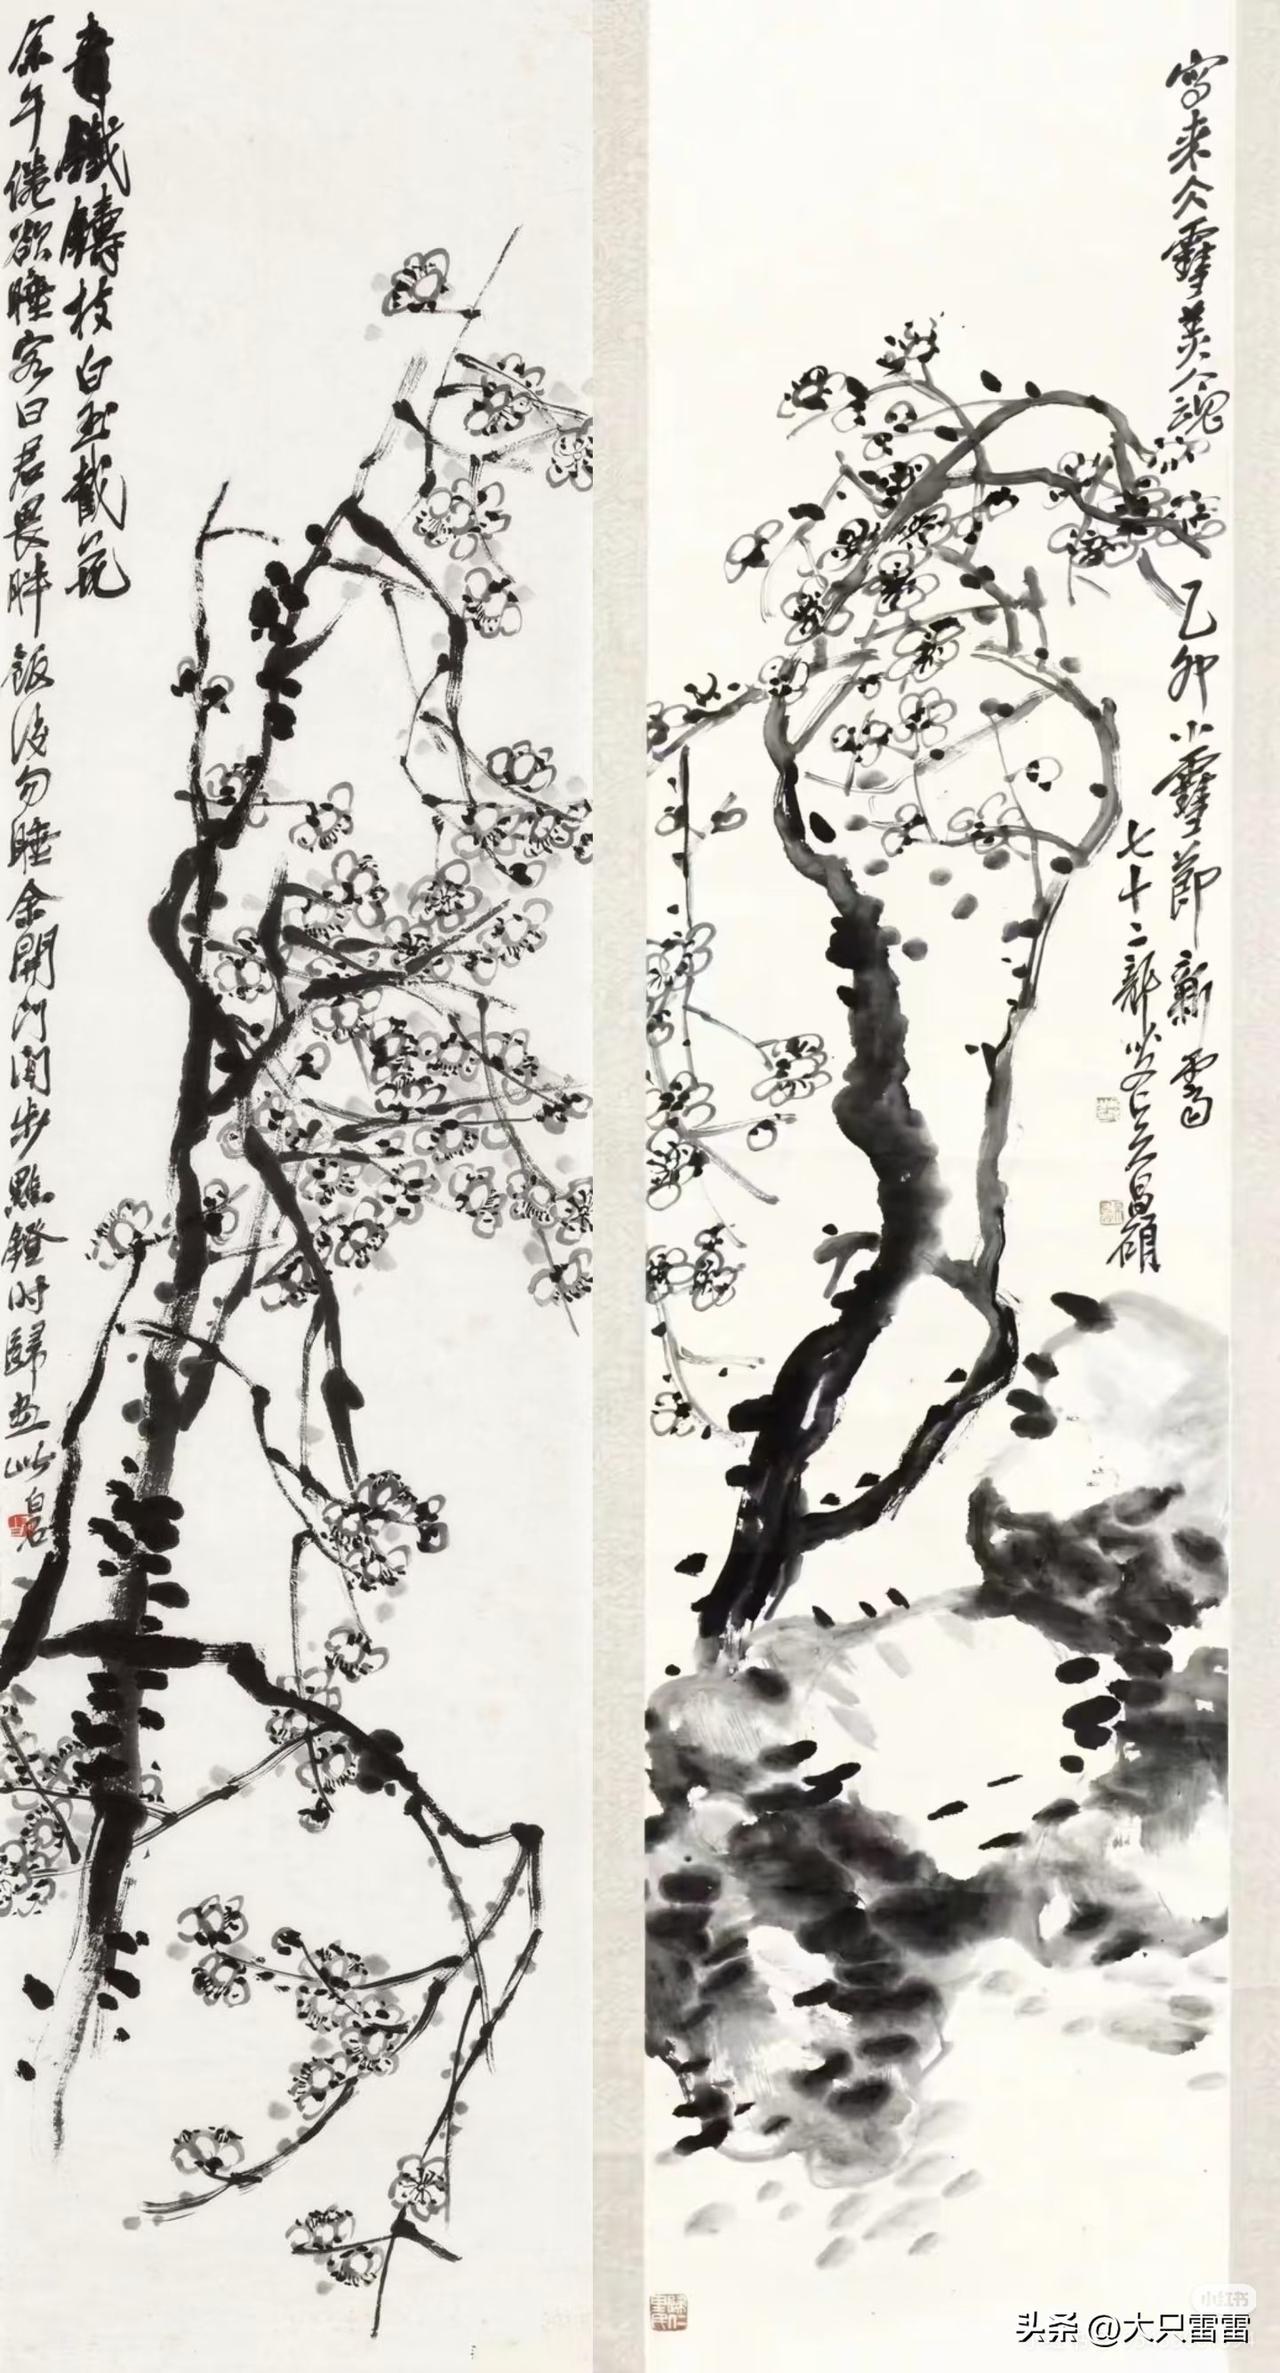 青鐵鑄枝白玉戴花
余午倦欲睡客曰君畏胖飯後勿睡余開門閒步點鐙时歸畫此白石
寫來令雪美人魂
乙卯小雪節新霽
七十二齡 吳昌碩
小红书
头条 @大只雷雷